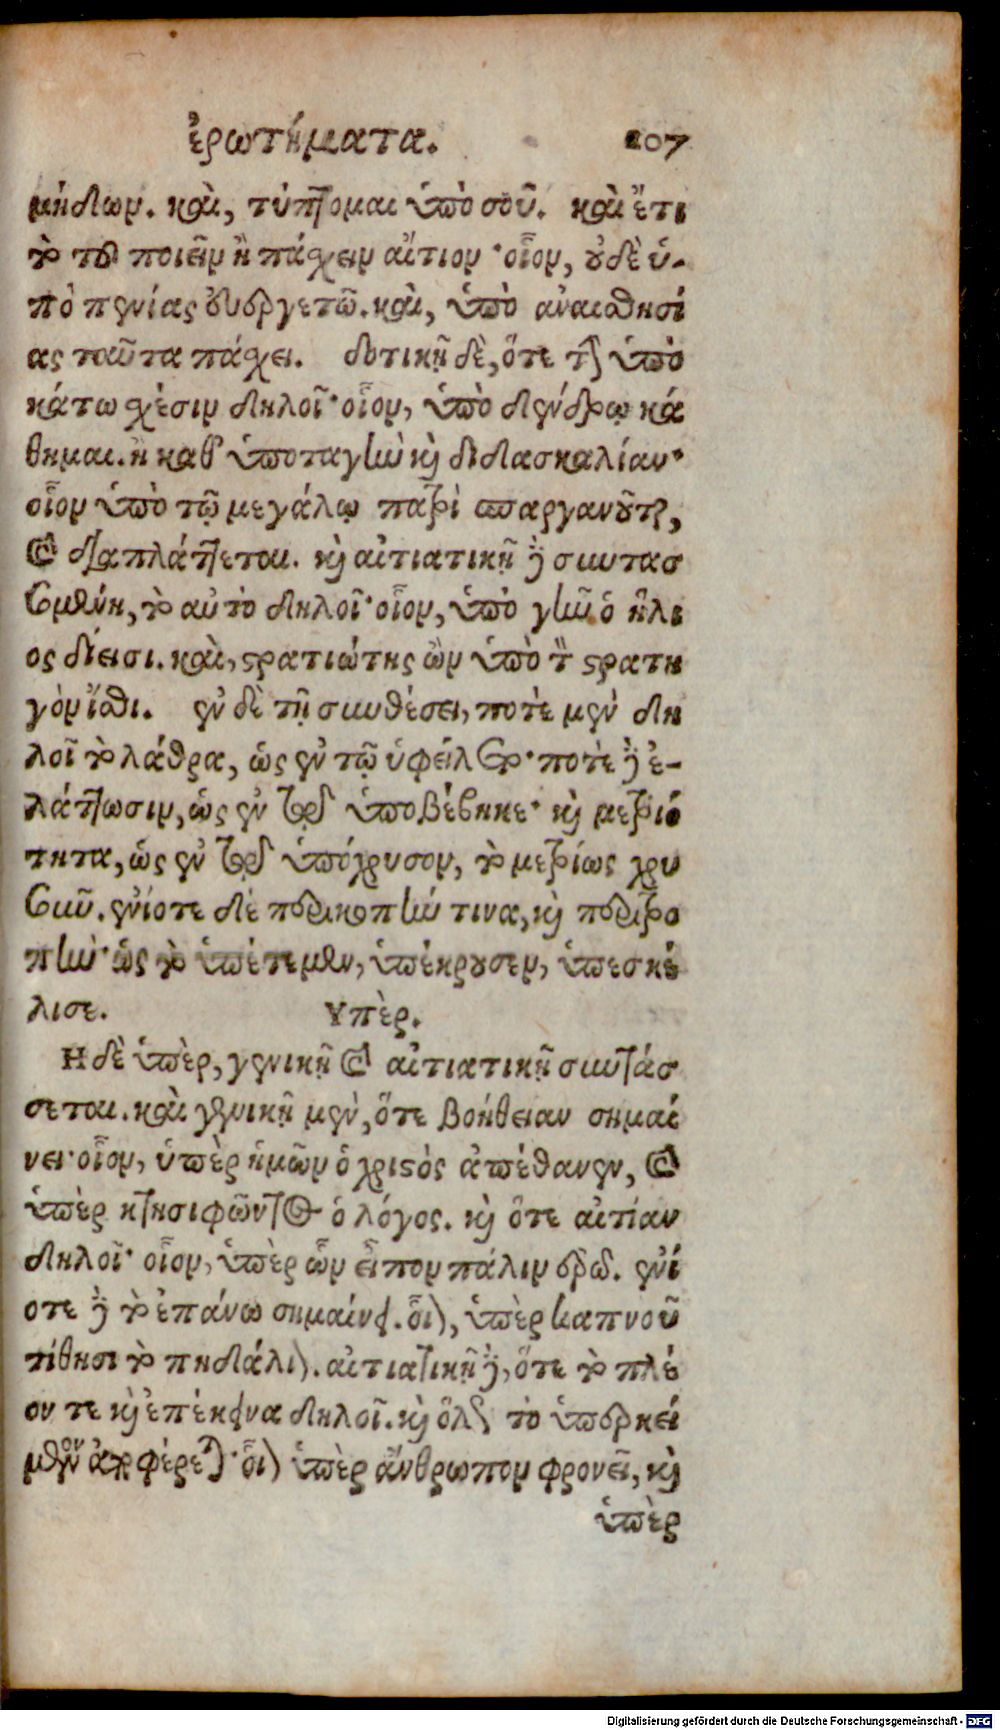 ἐρωτήματα. 207
μήδων. καὶ, τύπτομαι ὑπὸ σοῦ. καὶ ἔτι
τὸ τοῦ ποιεῖν ἢ πάσχειν αἴτιον· οἷον, οὐδὲ ὑ-
πὸ πενίας συνεργετῶ. καὶ, ὑπὸ ἀναισθησί
ας ταῦτα πάσχει. δοτικῇ δὲ, ὅτε τὴν ὑπὸ
κάτω σχέσιν δηλοῖ· οἷον, ὑπὸ δένδρῳ κά
θημαι. ἢ καθ' ὑποταγὴν καὶ διδασκαλίαν·
οἷον ὑπὸ τῷ μεγάλῳ πατρὶ σπαργανοῦται,
καὶ διαπλάττεται. καὶ αἰτιατικῇ δὲ συντασ
σομένη, τὸ αὐτὸ δηλοῖ· οἷον, ὑπὸ γῆν ὁ ἥλι
ος δίεισι. καὶ, στρατιώτης ὢν ὑπὸ τὸν στρατη
γὸν ἴσθι. ἐν δὲ τῇ συνθέσει, ποτὲ μὲν δη
λοῖ τὸ λάθρα, ὡς ἐν τῷ ὑφείλετο· ποτὲ δὲ ἐ-
λάττωσιν, ὡς ἐν τῷ ὑποβέβηκε· καὶ μετριό
τητα, ὡς ἐν τῷ ὑπόχρυσον, τὸ μετρίως χρυ
σοῦν. ἐνίοτε δὲ περικοπήν τινα, καὶ περιτρο
πήν· ὡς τὸ ὑπέτεμεν, ὑπέκρουσεν, ὑπεσκέ
λισε. Υπὲρ.
Η δὲ ὑπὲρ, γενικῇ καὶ αἰτιατικῇ συντάσ
σεται. καὶ γενικῇ μὲν, ὅτε βοήθειαν σημαί
νει· οἷον, ὑπὲρ ἡμῶν ὁ χριστὸς ἀπέθανεν, καὶ
ὑπὲρ κτησιφῶντος ὁ λόγος. καὶ ὅτε αἰτίαν
δηλοῖ· οἷον, ὑπὲρ ὧν εἶπον πάλιν ἐρῶ. ἐνί
οτε δὲ τὸ ἐπάνω σημαίνει. οἷον, ὑπὲρ καπνοῦ
τίθησι τὸ πηδάλιον. αἰτιατικῇ δὲ, ὅτε τὸ πλέ
ον τε καὶ ἐπέκεινα δηλοῖ. καὶ ὅλως τὸ ὑπερκεί
μενον φέρεται· οἷον ὑπὲρ ἄνθρωπον φρονεῖ, καὶ
ὑπὲρ
Digitalisierung gefördert durch die Deutsche Forschungsgemeinschaft - DFG